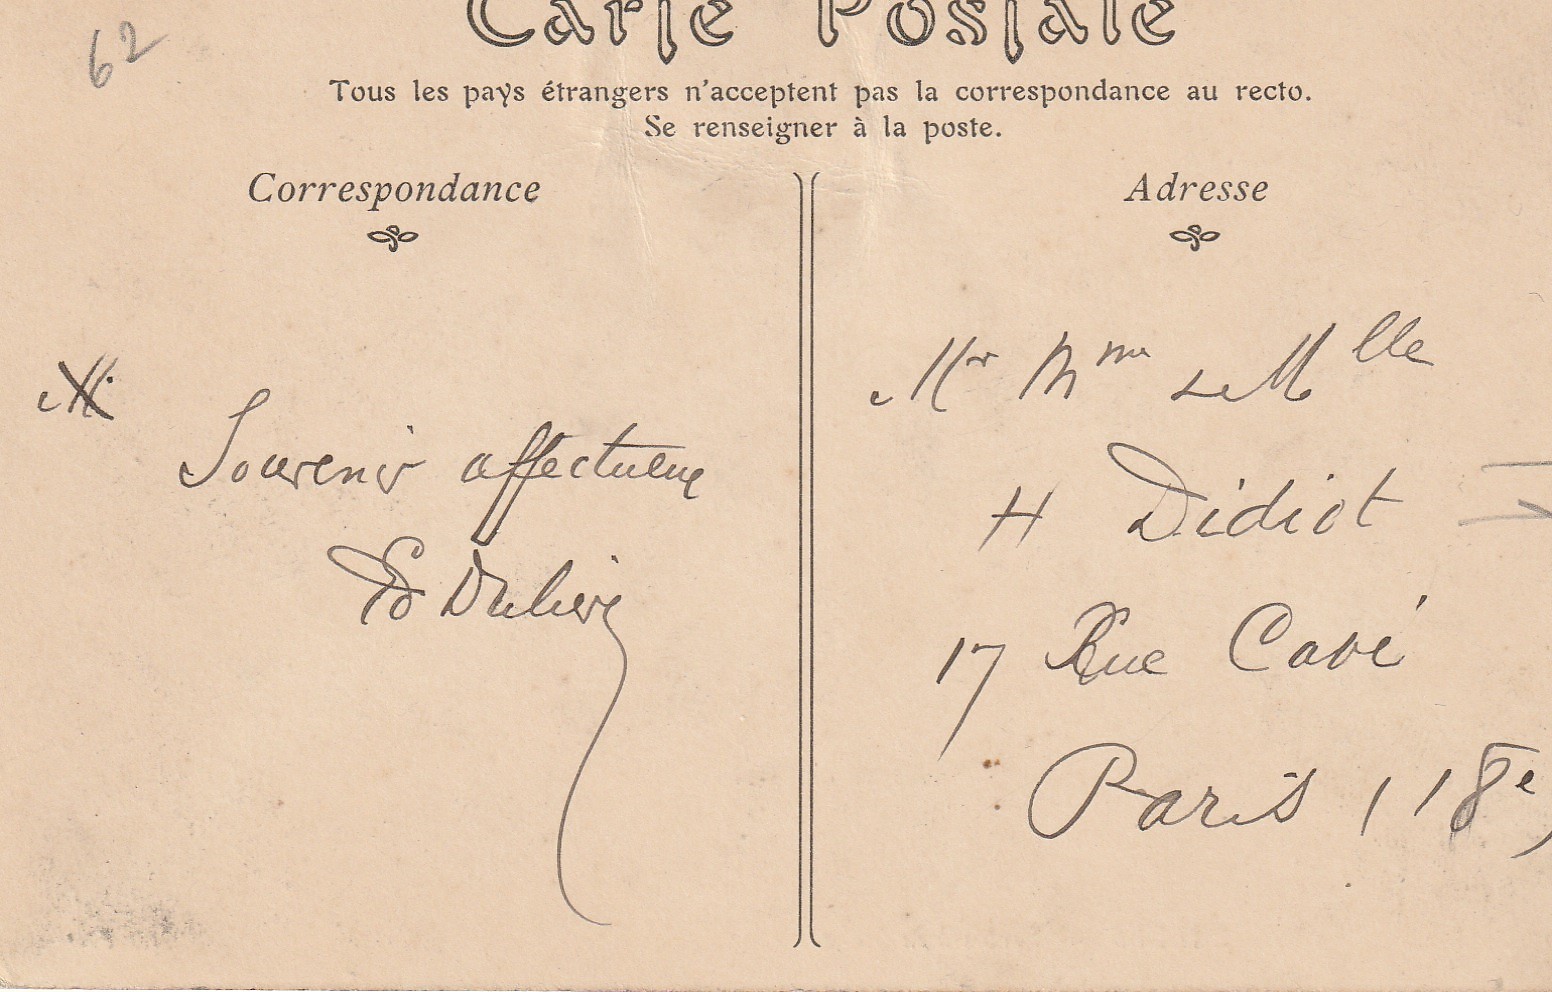 62
Carte Postale
Tous les pays étrangers n'acceptent pas la correspondance au recto.
Se renseigner à la poste.
Correspondance
Souvenir affectueux
Ed
Adresse
Mr Mme & Mlle
H Didiot
17 Rue Cavé
Paris (18e)